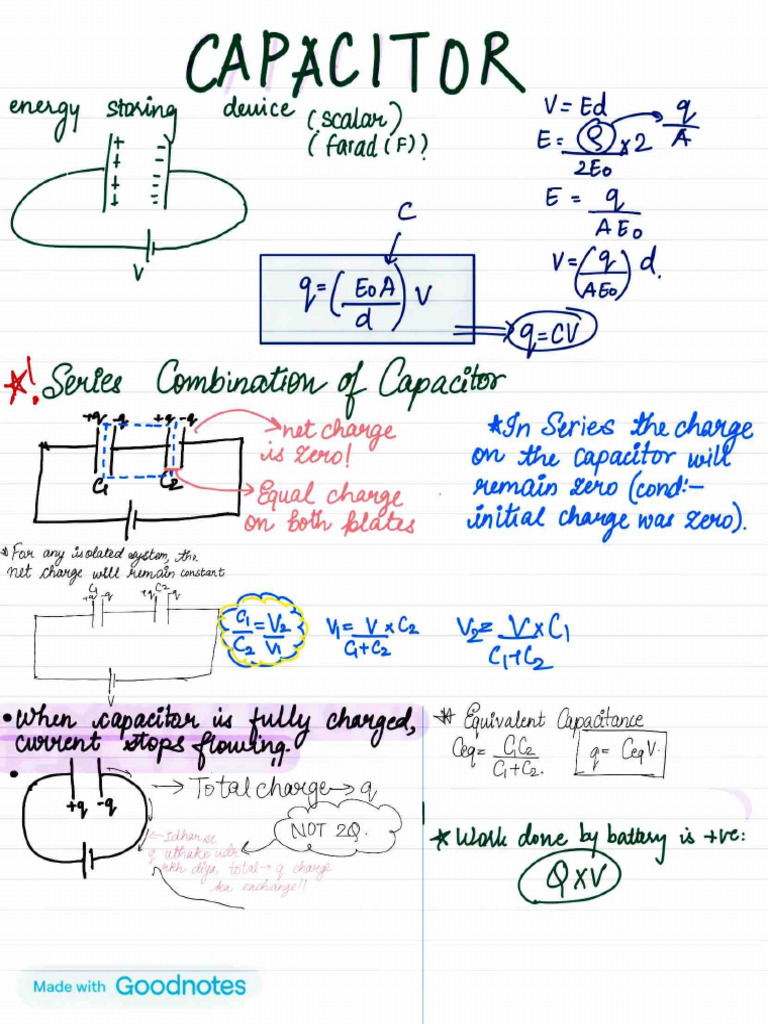 CAPACITOR
energy storing device (scalar)
(farad (F))?
+ -
+ -
+ -
+ -
V
V = Ed
E = ρ × 2 q/A
2E0
E = q/AE0
V = (q/AE0) d.
C
q = (E0A/d) V
q = CV
*! Series Combination of Capacitor
+q -q +q -q
C1 C2
net charge
is zero!
Equal charge
on both plates
*In Series the charge
on the capacitor will
remain zero (cond:-
initial charge was zero).
* For any isolated system, the
net charge will remain constant
C1 C2
+q -q +q -q
V
C1/C2 = V2/V1
V1 = V/C1+C2 × C2
V2 = V/C1+C2 × C1
• When capacitor is fully charged,
current stops flowing.
• +q -q
→ Total charge → q
NOT 2Q.
← Idhar se
q uthake udr
rkh diya, total → q charge
ka exchange!!
* Equivalent Capacitance
Ceq = C1C2/C1+C2.
q = CeqV.
* Work done by battery is +ve:
Q×V
Made with Goodnotes